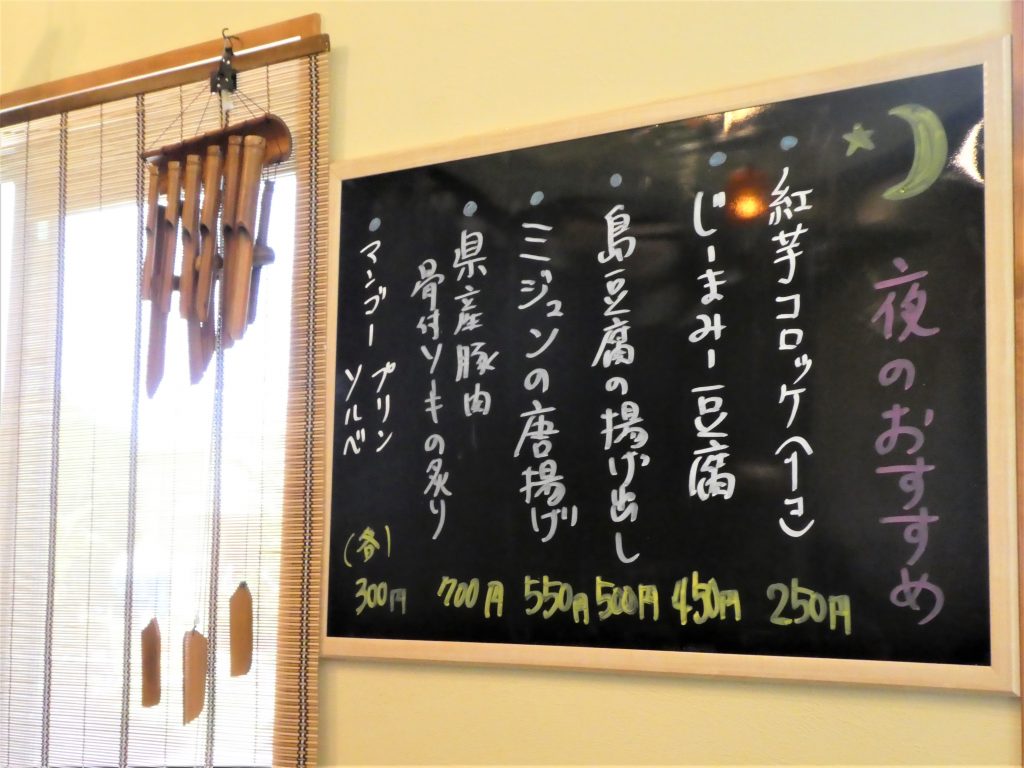 夜のおすすめ
紅芋コロッケ(1コ) 250円
じーまみー豆腐 450円
島豆腐の揚げ出し 500円
ミジュンの唐揚げ 550円
県産豚肉
骨付ソーキの炙り 700円
マンゴー プリン
ソルベ
(各) 300円